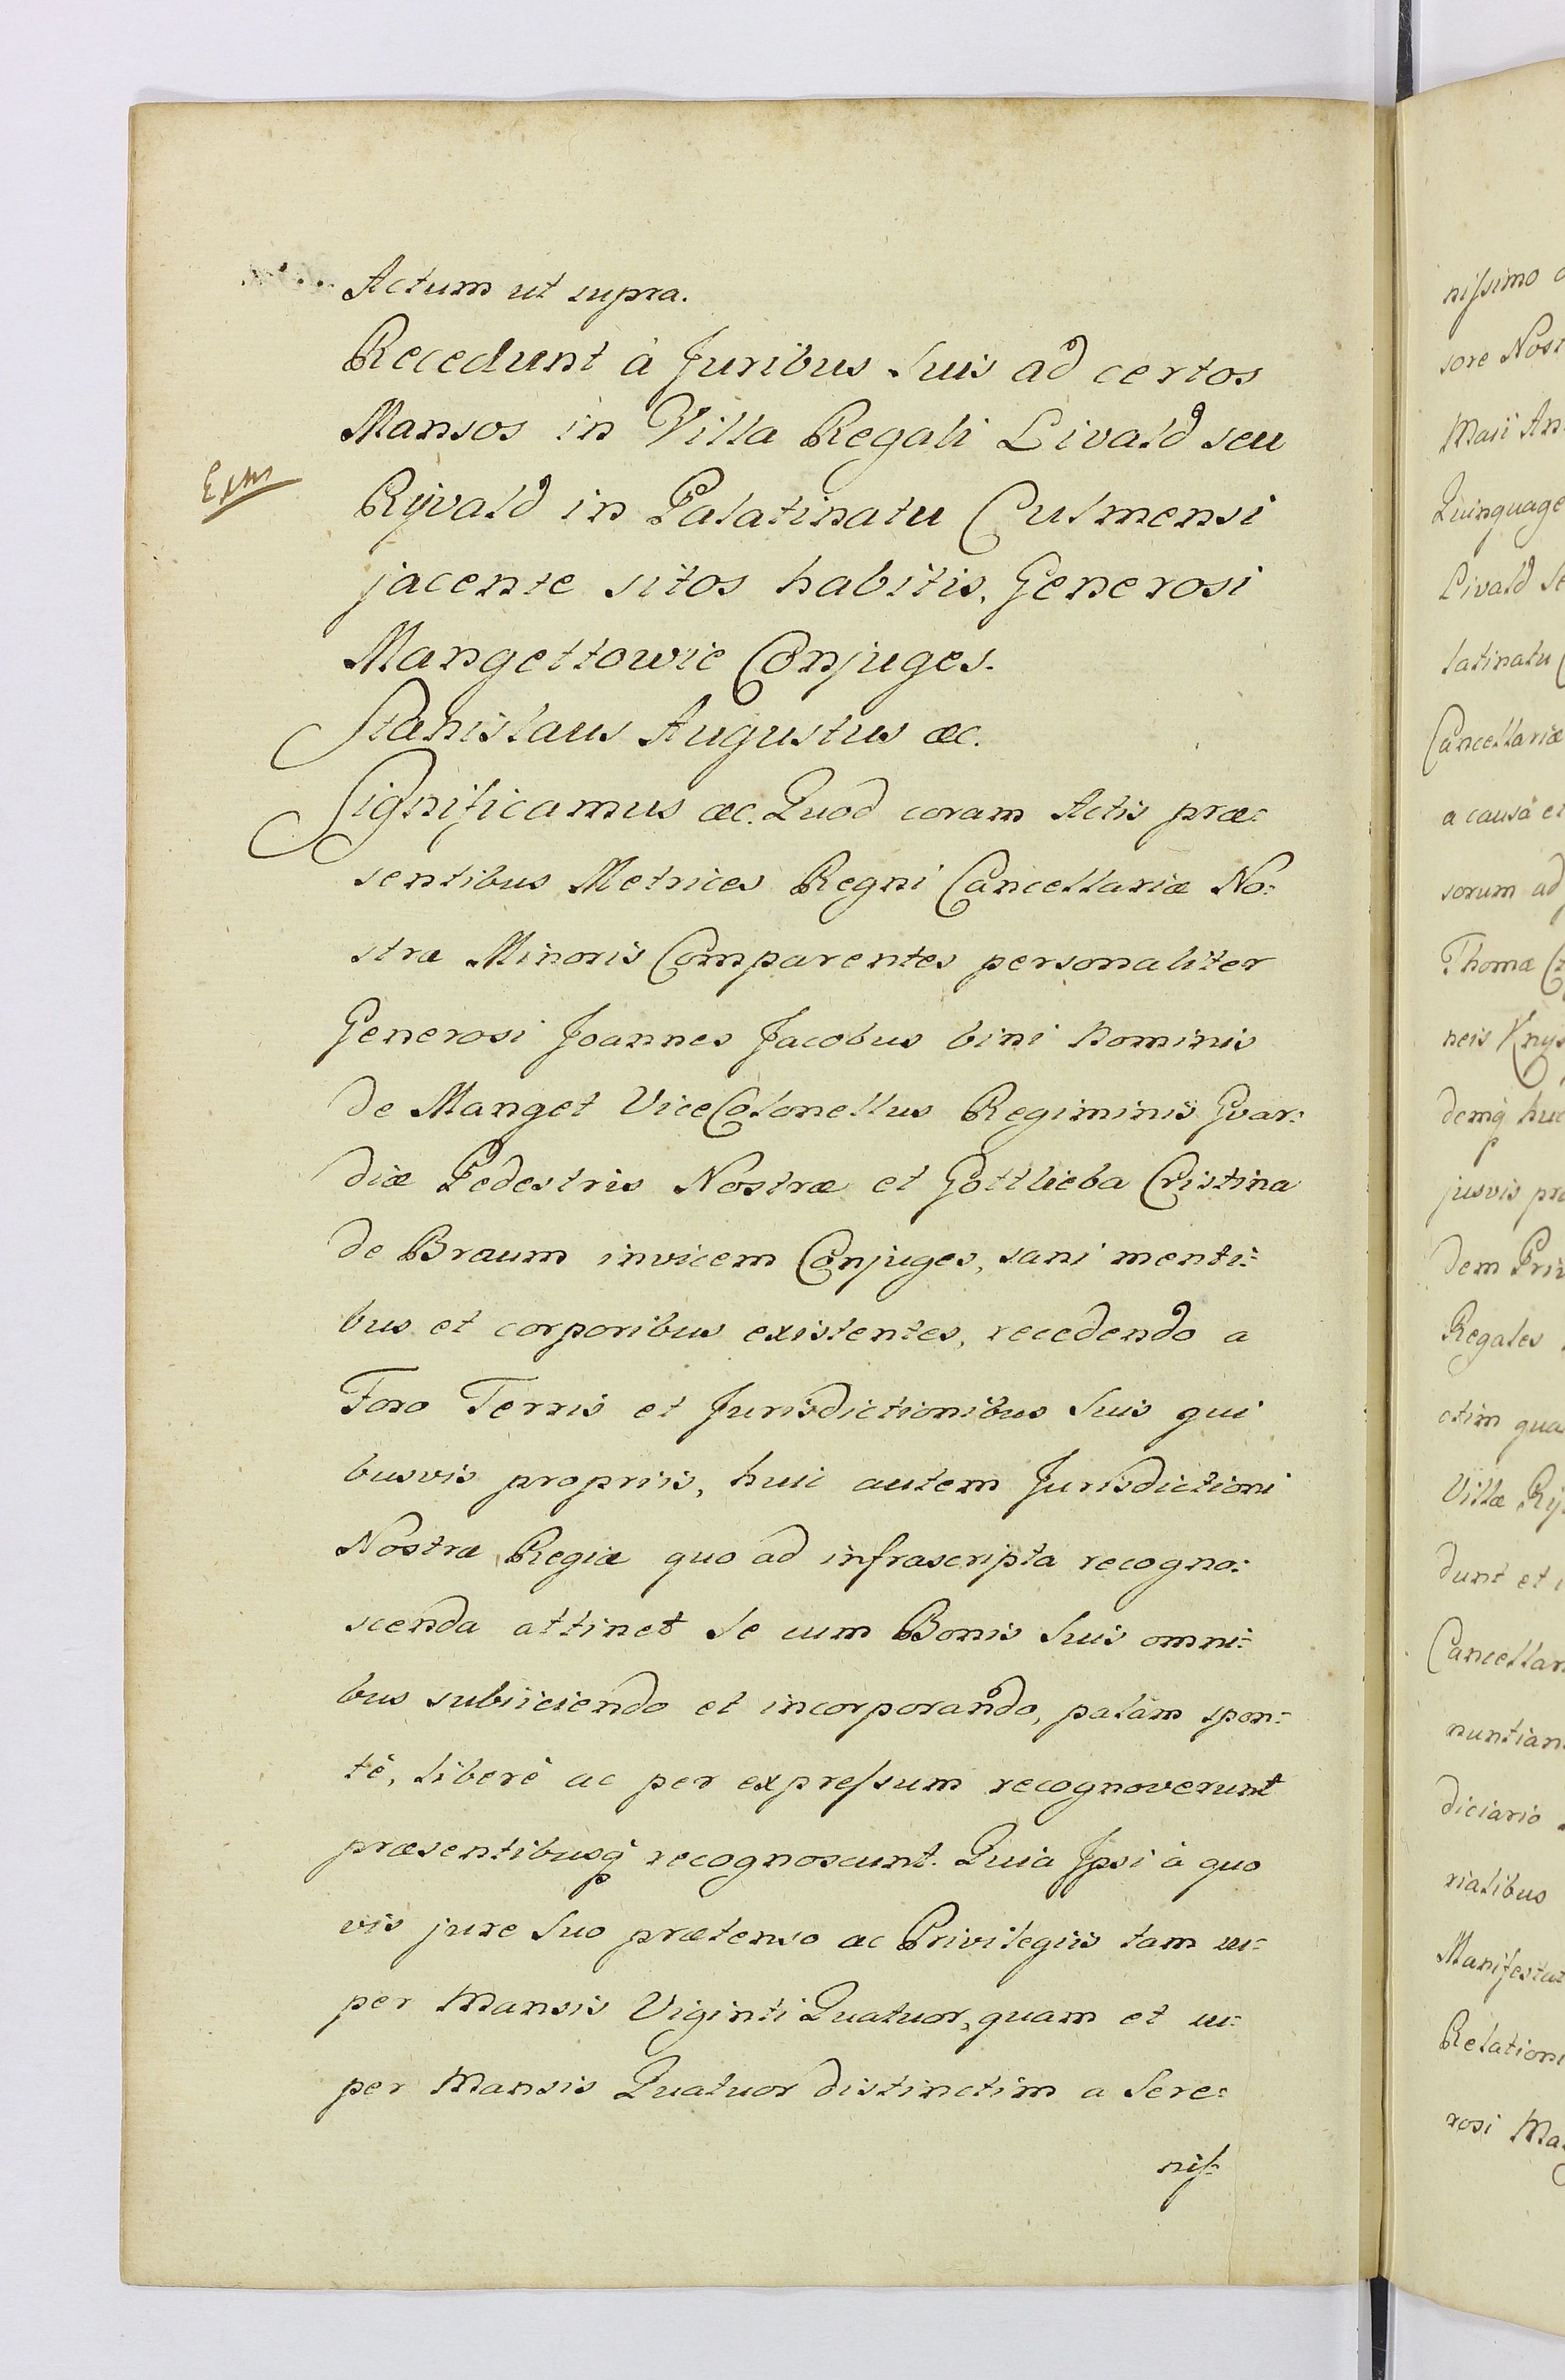 Actum ut supra.
Recedunt à Juribus Suis ad certos
Mansos in Villa Regali Livald seu
Extr
Ryvald in Palatinatu Culmensi
jacente sitos habitis, Generosi
Mangettowie Conjuges.
Stanislaus Augustus æc.
Significamus æc. Quod coram Actis præ:
sentibus Metrices Regni Cancellariæ No:
stræ Minoris Comparentes personaliter
Generosi Joannes Jacobus bini Nominis
de Manget ViceColonellus Regiminis Gvar:
diæ Pedestris Nostræ et Gottlieba Cristina
de Braum invicem Conjuges, sani menti:
bus et corporibus existentes, recedendo a
Foro Terris et Jurisdictionibus Suis qui
busvis propriis, huic autem Jurisdictioni
Nostræ Regiæ quo ad infrascripta recogno:
scenda attinet Se cum Bonis Suis omni:
bus subiiciendo et incorporando, palàm spon:
tè, liberè ac per expreſsum recognoverunt
præsentibusq̃ recognoscunt. Quia Ipsi à quo
vis jure Suo prætenso ac Privilegiis tam su:
per Mansis Viginti Quatuor, quam et su:
per Mansis Quatuor distinctim a Sere:
niſ:
niſsimo
sore Nost
Maii An
Quinquage
Livald Se
latinatu
Cancellariæ
a causâ et
sorum ad
Thomæ
neis Knys
demq̃ huc
jusvis præ
dem Priv
Regales
ctim qua
Villæ Ry
dunt et
Cancellar
nuntian
diciario
rialibus
Manifestat
Relation
rosi Ma